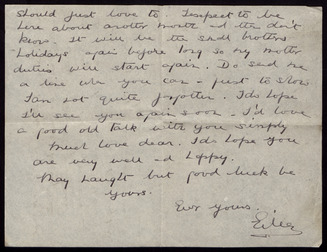 should just love to. I expect to be
here about another month - d then don't
know. It will be the small brothers
holidays again before long so my mother
duties will start again. Do send me
a line when you can - just to show
I am not quite forgotten. I do hope
I'll see you again soon - I'd love
a good old talk with you simply
Much love dear. I do hope you
are very well - d happy.
May naught but good luck be
yours.
Ever yours,